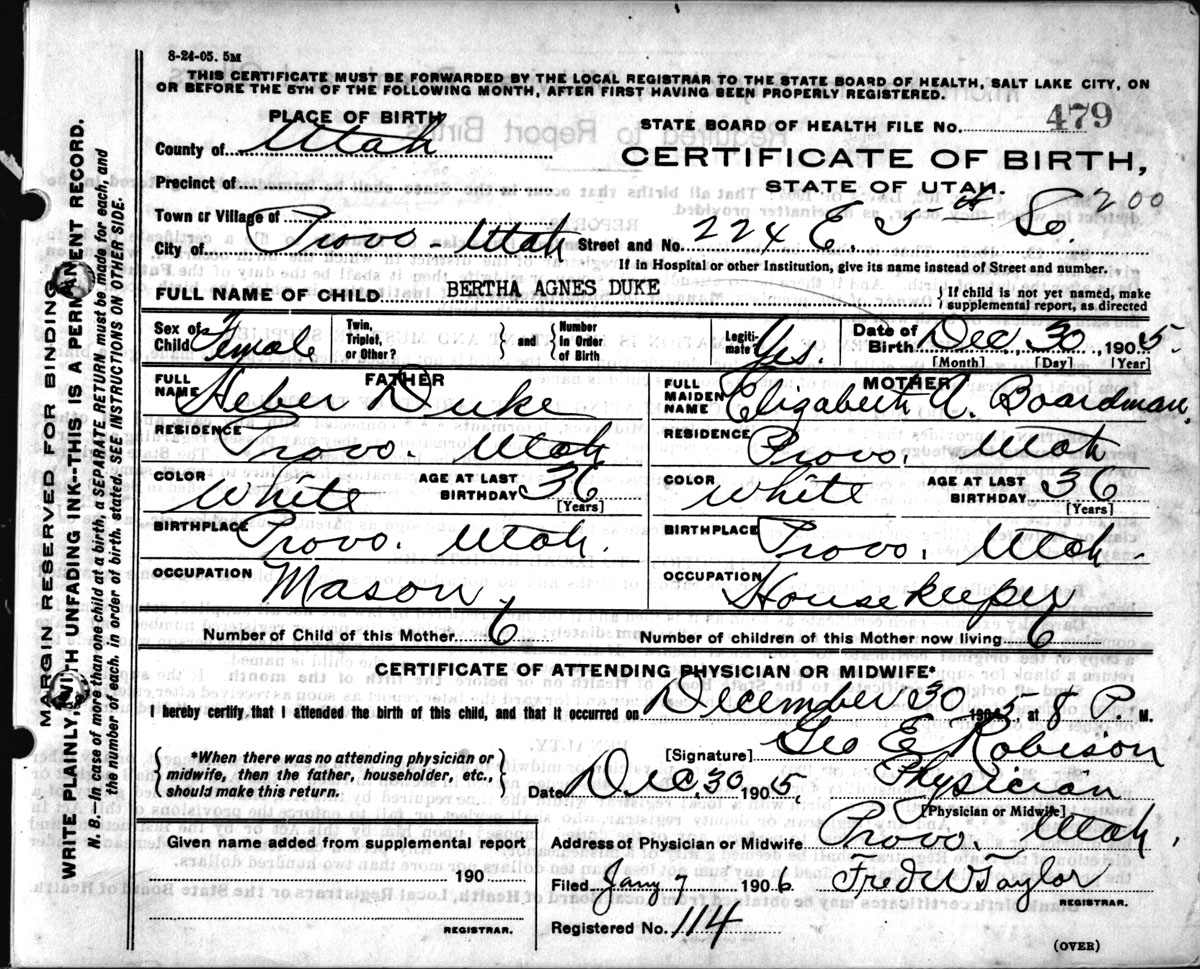 8-24-05. 5M
THIS CERTIFICATE MUST BE FORWARDED BY THE LOCAL REGISTRAR TO THE STATE BOARD OF HEALTH, SALT LAKE CITY, ON
OR BEFORE THE 5TH OF THE FOLLOWING MONTH, AFTER FIRST HAVING BEEN PROPERLY REGISTERED.
PLACE OF BIRTH
STATE BOARD OF HEALTH FILE No. 479
County of Utah
CERTIFICATE OF BIRTH,
Precinct of
STATE OF UTAH.
Town or Village of
200
City of Provo - Utah Street and No. 224 E. So.
If in Hospital or other Institution, give its name instead of Street and number.
FULL NAME OF CHILD BERTHA AGNES DUKE { If child is not yet named, make
supplemental report, as directed
Sex of Child Female
Twin, Triplet, or Other? } and { Number in Order of Birth
Legiti-mate? Yes.
Date of Birth Dec 30, 1905.
[Month] [Day] [Year]
FATHER
FULL NAME Heber Duke
RESIDENCE Provo. Utah
COLOR White AGE AT LAST BIRTHDAY 36
[Years]
BIRTHPLACE Provo. Utah.
OCCUPATION Mason
MOTHER
FULL MAIDEN NAME Elizabeth A. Boardman
RESIDENCE Provo. Utah
COLOR White AGE AT LAST BIRTHDAY 36
[Years]
BIRTHPLACE Provo. Utah.
OCCUPATION Housekeeper
Number of Child of this Mother 6 Number of children of this Mother now living 6
CERTIFICATE OF ATTENDING PHYSICIAN OR MIDWIFE*
I hereby certify that I attended the birth of this child, and that it occurred on December 30 1905, at 8 P. M.
{ *When there was no attending physician or
midwife, then the father, householder, etc.,
should make this return. }
[Signature] Geo E Robison
Date Dec. 30 1905. Physician
[Physician or Midwife]
Given name added from supplemental report
190
REGISTRAR.
Address of Physician or Midwife Provo. Utah.
Filed Jany 7 1906 Fred W Taylor
REGISTRAR.
Registered No. 114
(OVER)
MARGIN RESERVED FOR BINDING
WRITE PLAINLY, WITH UNFADING INK--THIS IS A PERMANENT RECORD.
N. B.--In case of more than one child at a birth, a SEPARATE RETURN must be made for each, and
the number of each, in order of birth, stated. SEE INSTRUCTIONS ON OTHER SIDE.